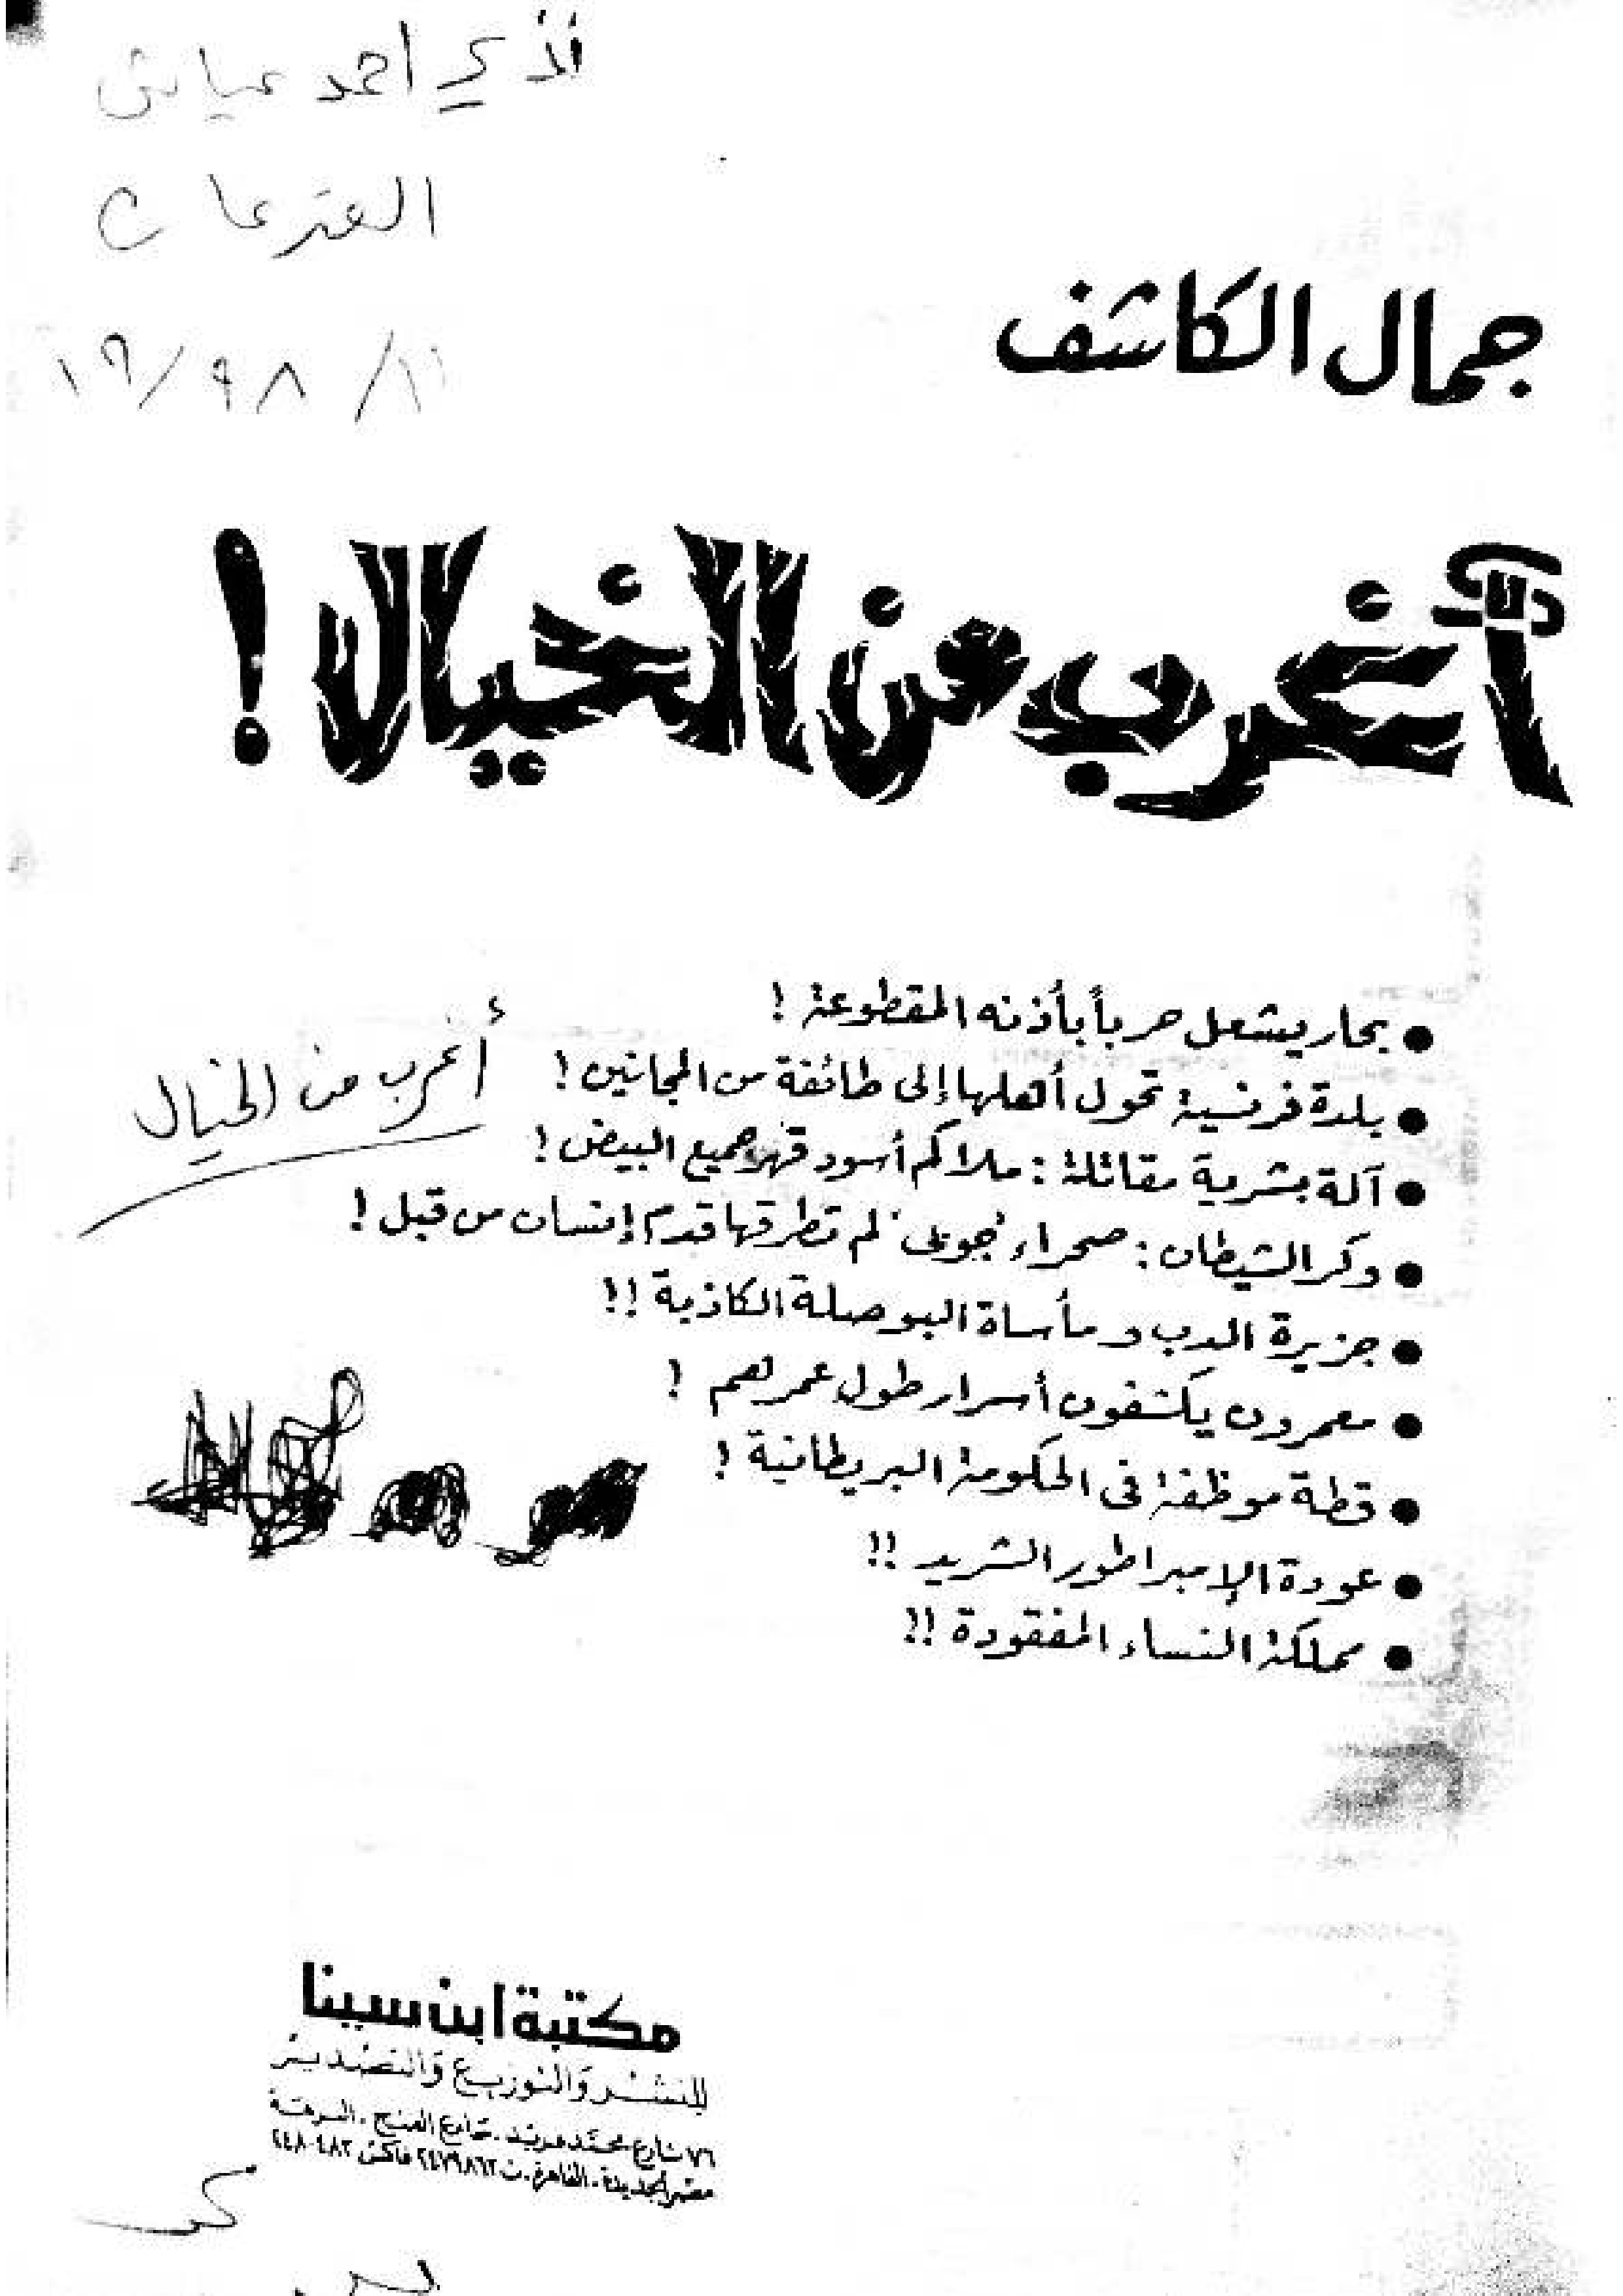 احمد عياش
جمال الكاشف
أغرب من الخيال !
● بحار يشعل حرباً بأذنه المقطوعة !
● بلدة فرنسية تحول أهلها إلى طائفة من المجانين !
أغرب من الخيال
● آلة بشرية مقاتلة : ملاكم أسود قهر جميع البيض !
● وكر الشيطان : صحراء "جوبى" لم تطرقها قدم إنسان من قبل !
● جزيرة الدب ومأساة البوصلة الكاذبة !!
● معمرون يكشفون أسرار طول عمرهم !
● قطة موظفة فى الحكومة البريطانية !
● عودة الإمبراطور الشريد !!
● مملكة النساء المفقودة !!
مكتبة ابن سينا
للنشر والتوزيع والتصدير
٧٦ شارع محمد فريد - جامع الفتح - النزهة
مصر الجديدة - القاهرة - ت ٢٤٧٩٨٦٣ فاكس ٢٤٨٠٤٨٣